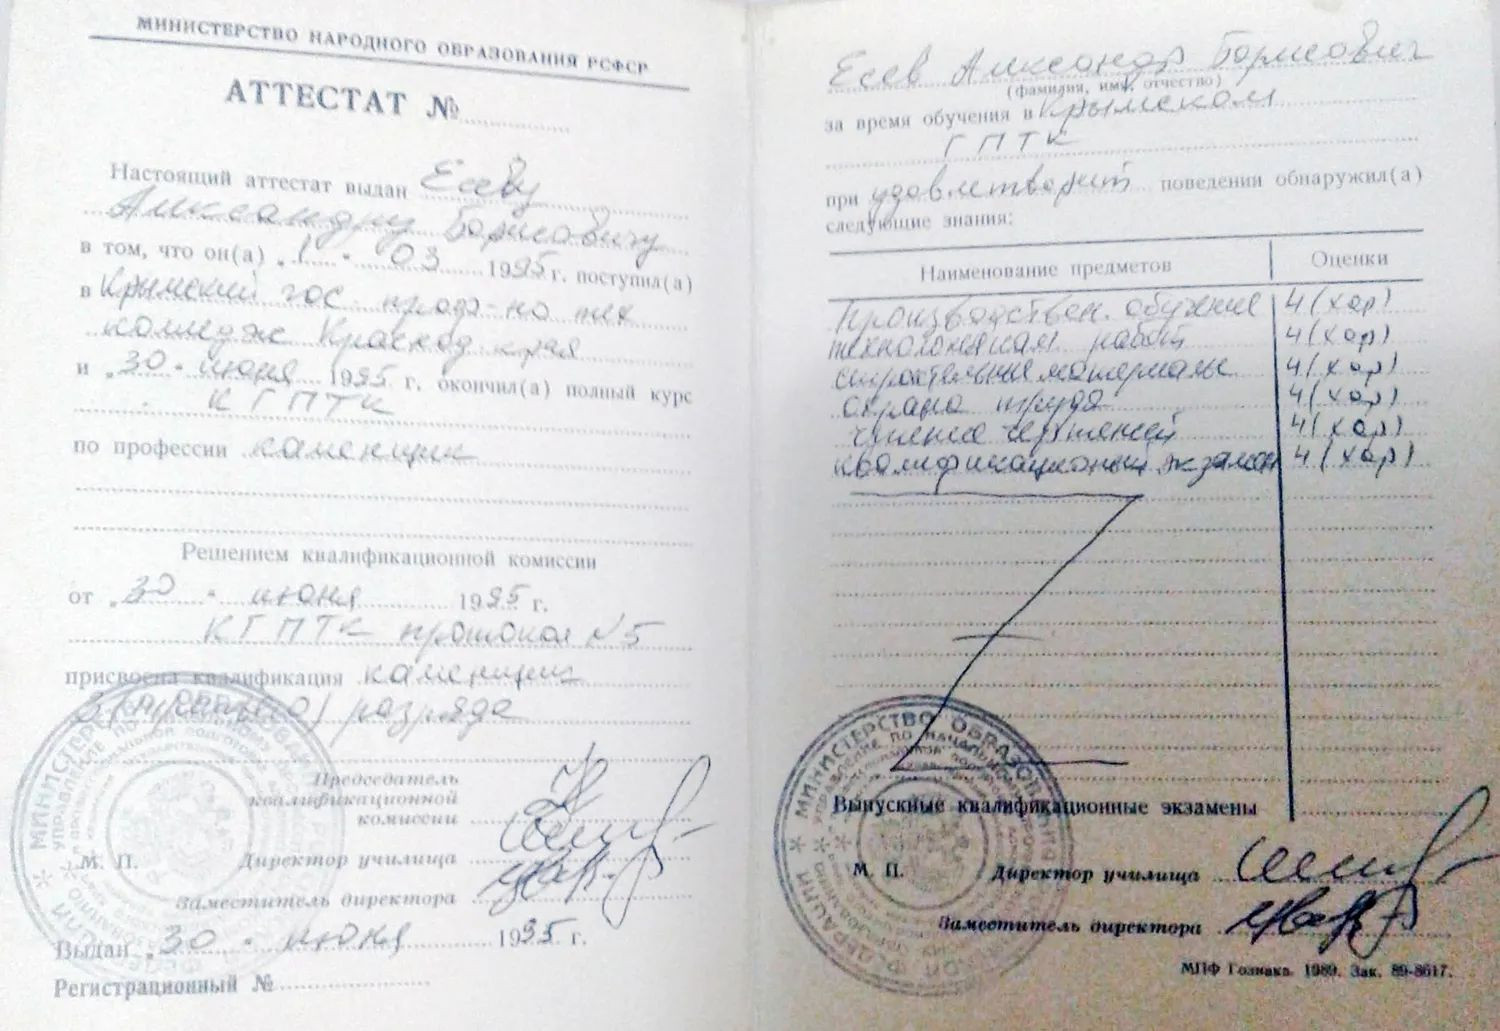 МИНИСТЕРСТВО НАРОДНОГО ОБРАЗОВАНИЯ РСФСР
АТТЕСТАТ №
Настоящий аттестат выдан Есеву
Александру Борисовичу
в том, что он(а) „1" 03 1995 г. поступил(а)
в Крымский гос. проф-но тех
колледж Краснод. края
и „30" июня 1995 г. окончил(а) полный курс
КГПТК
по профессии каменщик
Решением квалификационной комиссии
от „30" июня 1995 г.
КГПТК протокол №5
присвоена квалификация каменщик
3 (третьего) разряда
Председатель
квалификационной
комиссии
М. П. Директор училища
Заместитель директора
Выдан „30" июня 1995 г.
Регистрационный №
Есев Александр Борисович
(фамилия, имя, отчество)
за время обучения в Крымском
ГПТК
при удовлетворит поведении обнаружил(а)
следующие знания:
Наименование предметов Оценки
Производствен. обучение 4 (хор)
технология кам. работ 4 (хор)
строительные материалы 4 (хор)
охрана труда 4 (хор)
чтение чертежей 4 (хор)
квалификационный экзамен 4 (хор)
Выпускные квалификационные экзамены
М. П. Директор училища
Заместитель директора
МПФ Гознака. 1989. Зак. 89-8617.